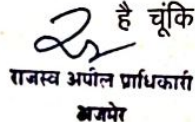 है चूंकि
राजस्व अपील प्राधिकारी
अजमेर